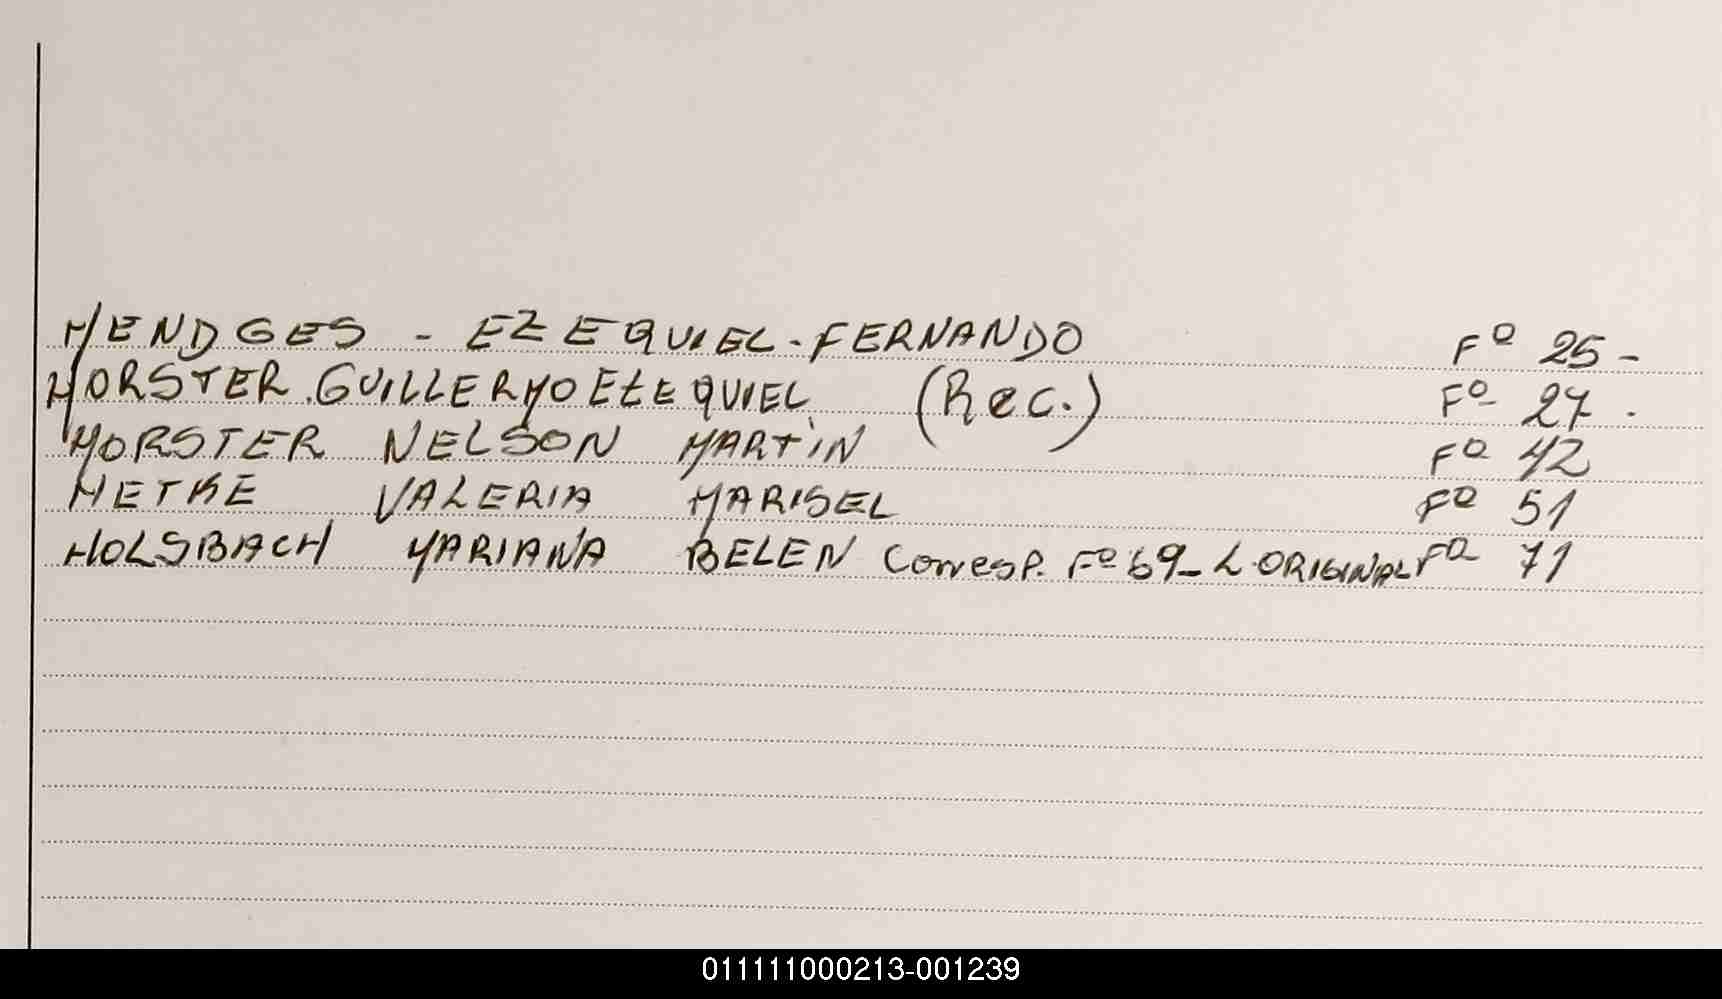 HENDGES - EZEQUIEL - FERNANDO Fº 25 -
HORSTER . GUILLERMO EZEQUIEL (Rec.) Fº 27 .
HORSTER NELSON MARTÍN Fº 42
HETKE VALERIA MARISEL Fº 51
HOLSBACH MARIANA BELEN Corresp. Fº 69 - L. ORIGINAL Fº 71
011111000213-001239